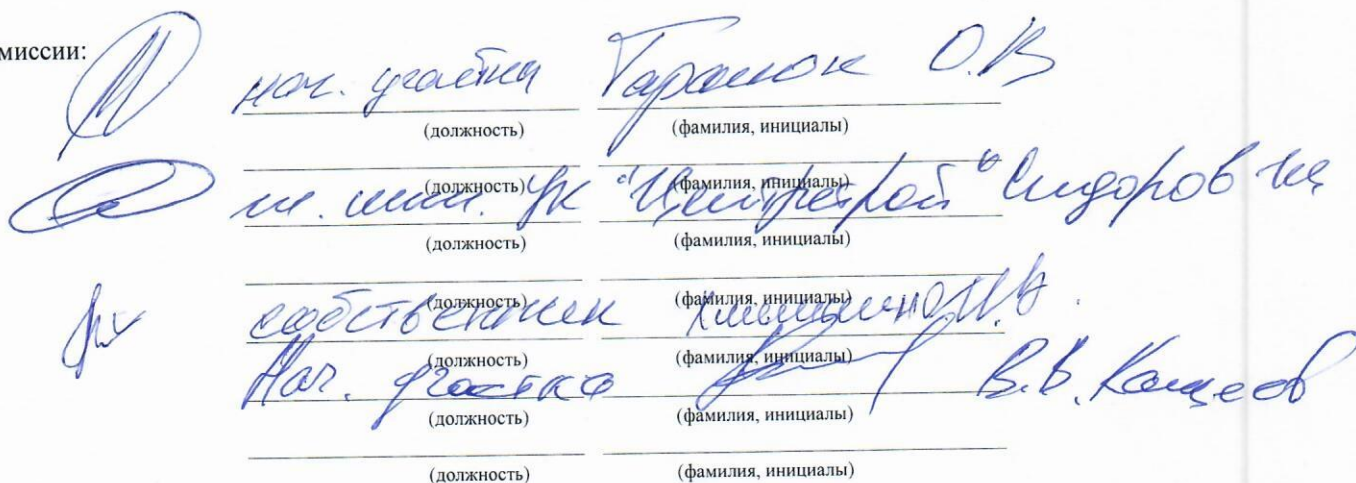 миссии:
нач. участка Таранюк О.В
(должность) (фамилия, инициалы)
(должность) (фамилия, инициалы)
УК "Центрстрой" Сидоров
(должность) (фамилия, инициалы)
(должность) (фамилия, инициалы)
собственник
(должность) (фамилия, инициалы)
Нач. участка В.В. Кащеев
(должность) (фамилия, инициалы)
(должность) (фамилия, инициалы)